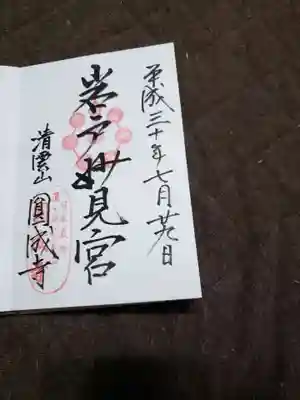 平成三十年七月廿九日
岩戸妙見宮
清雲山
圓成寺